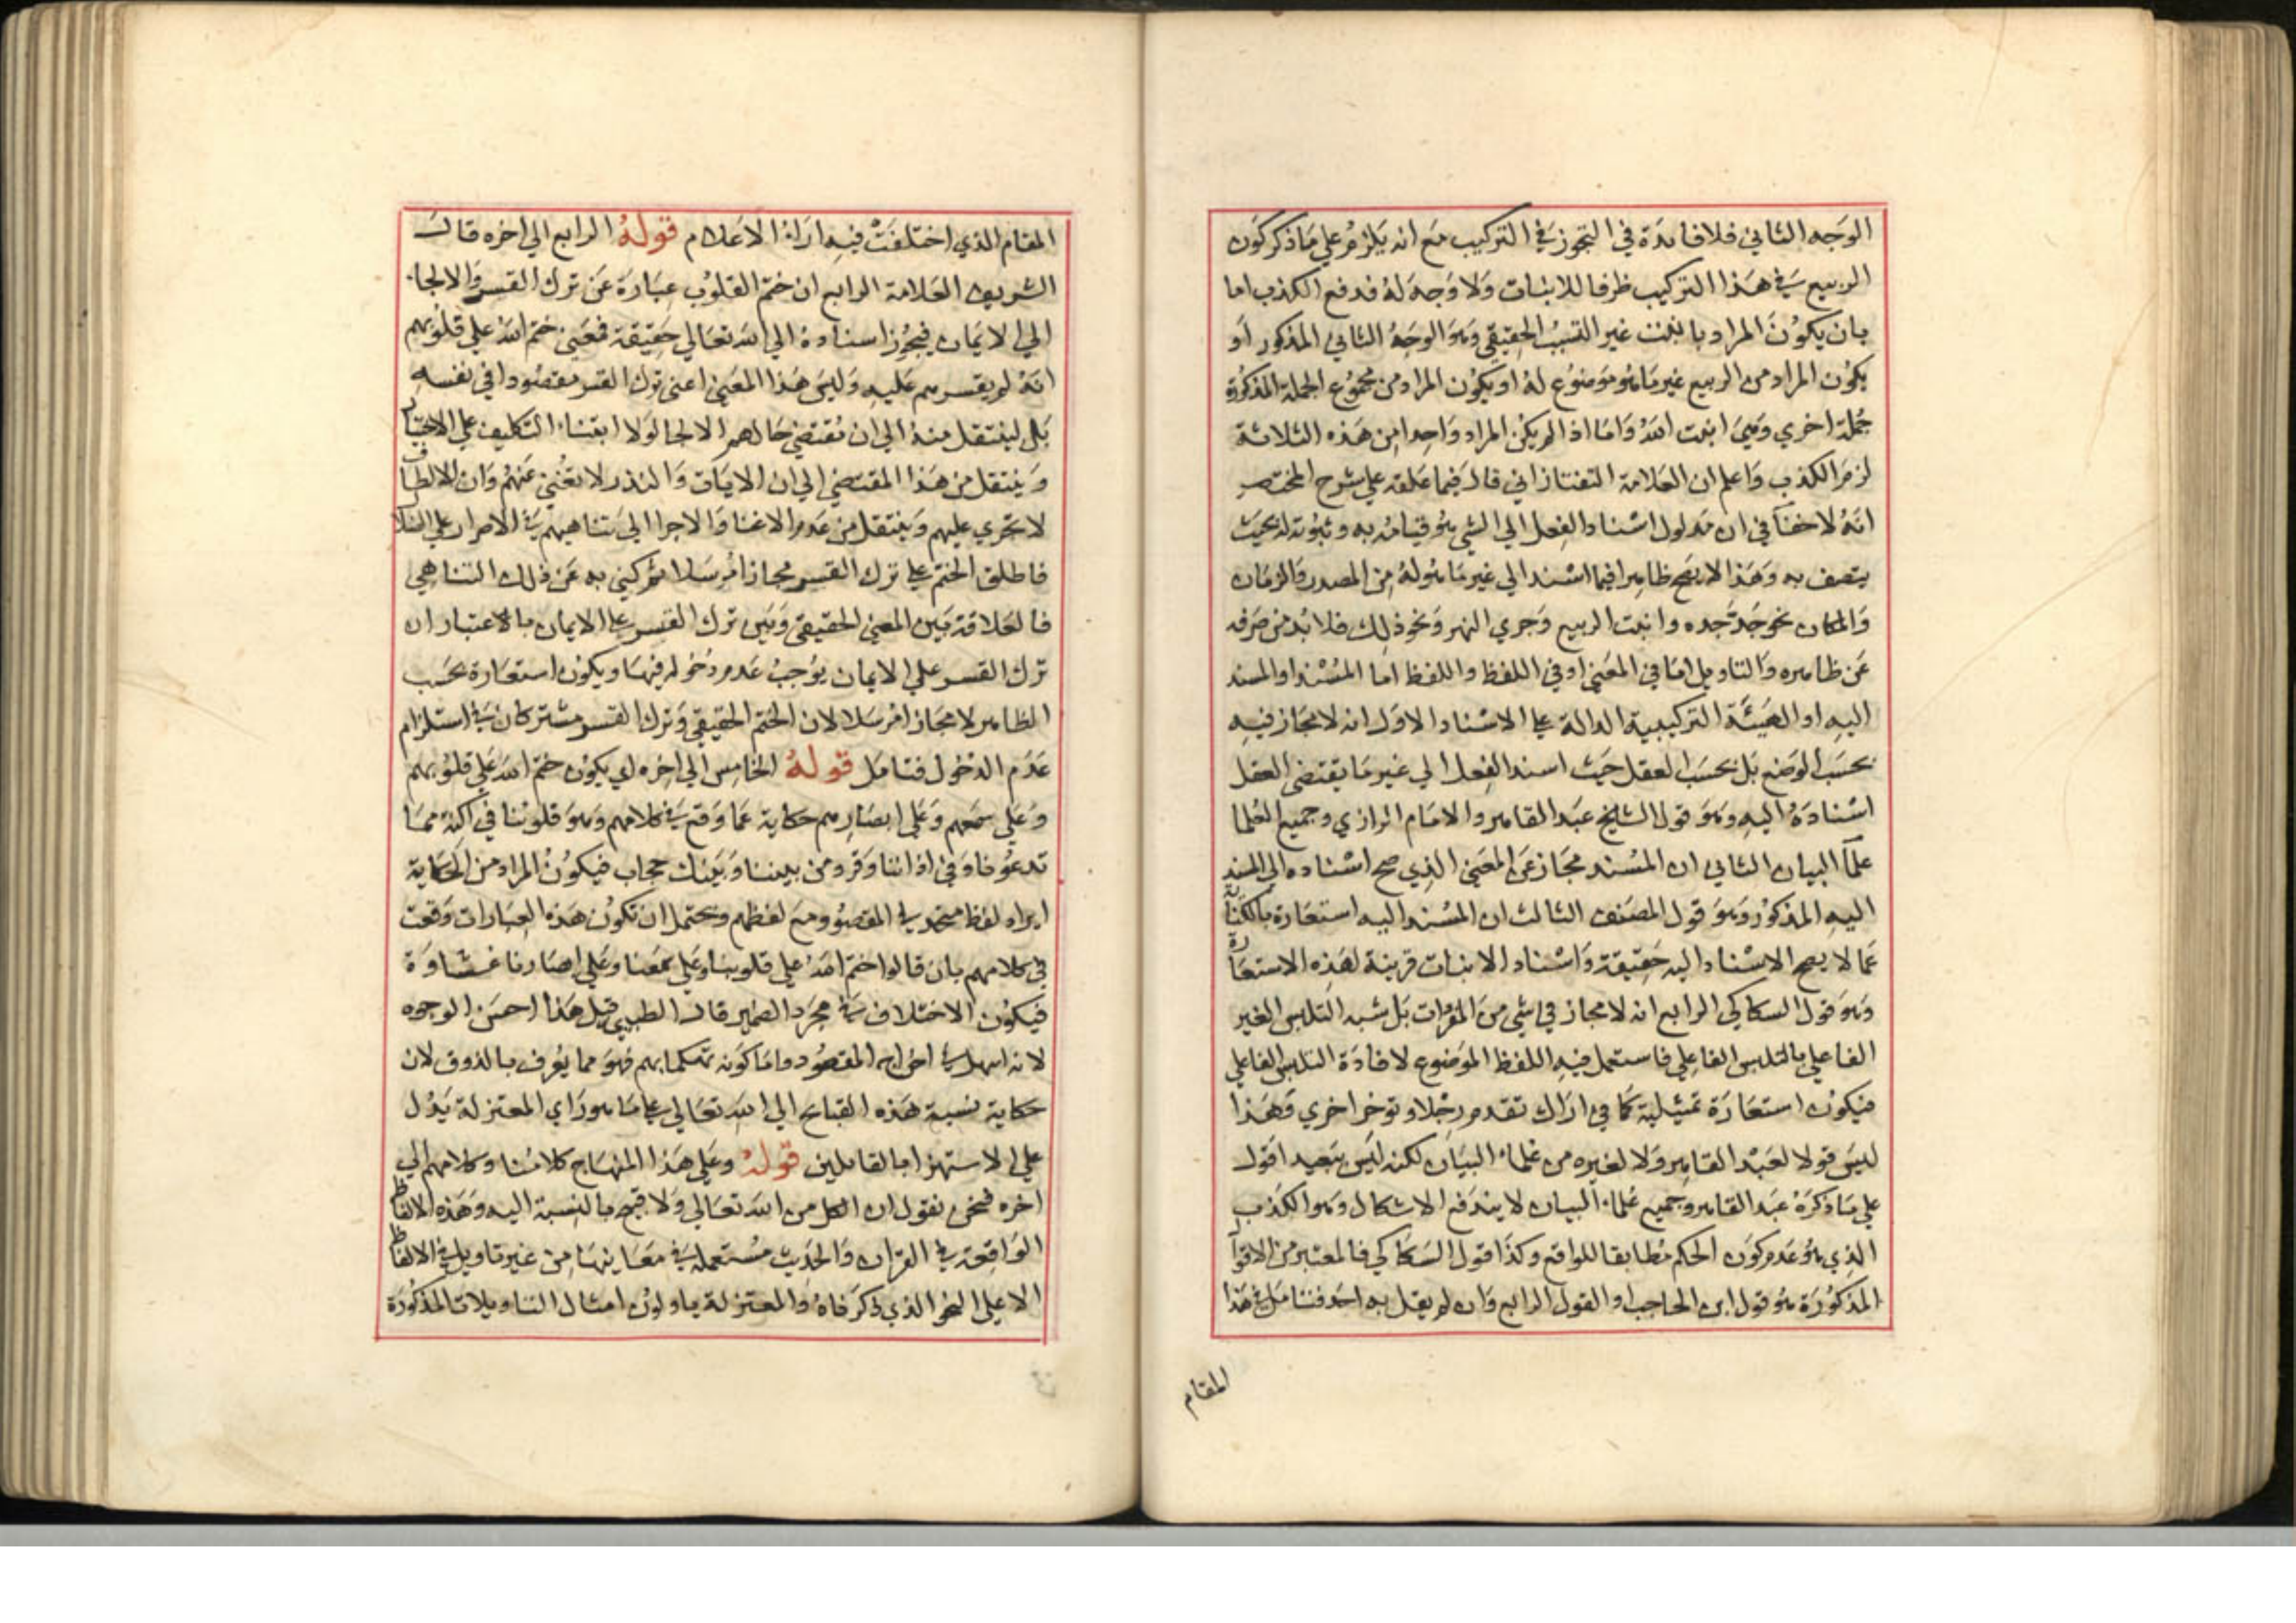 الوجه الثاني فلا فايدة في التجوز في التركيب مع انه يلزم على ما ذكر كون
الربيع في هذا التركيب ظرفا للانبات ولا وجه له فدفع الكذب اما
بان يكون المراد بانبت غير التسبب الحقيقي وهو الوجه الثاني المذكور او
يكون المراد من الربيع غير ما هو موضوع له او يكون المراد من مجموع الجملة المذكورة
جملة اخري وهي انبت الله واما اذا لم يكن المراد واحدا من هذه الثلاثة
لزم الكذب واعلم ان العلامة التفتازاني قال فيما علقه علي شرح المختصر
انه لا خفا في ان مدلول اسناد الفعل الي الشي هو قيامه به وثبوته له بحيث
يتصف به وهذا لا يصح ظاهرا فيما اسند الي غير ما هو له من المصدر والزمان
والمكان نحو جد جده وانبت الربيع وجري النهر ونحو ذلك فلا بد من صرفه
عن ظاهره والتاويل اما في المعني او في اللفظ واللفظ اما المسند او المسند
اليه او الهيئة التركيبية الدالة علي الاسناد الاول انه لا مجاز فيه
بحسب الوضع بل بحسب العقل حيث اسند الفعل الي غير ما يقتضي العقل
اسناده اليه وهو قول الشيخ عبد القاهر والامام الرازي وجميع العلما
علما البيان الثاني ان المسند مجاز عن المعني الذي صح اسناده الي المسند
اليه المذكور وهو قول المصنف الثالث ان المسند اليه استعارة بالكناية
عما لا يصح الاسناد اليه حقيقة واسناد الانبات قرينة لهذه الاستعارة
وهو قول السكاكي الرابع انه لا مجاز في شي من المفردات بل شبه التلبس الغير
الفاعلي بالتلبس الفاعلي فاستعمل فيه اللفظ الموضوع لافادة التلبس الفاعلي
فيكون استعارة تمثيلية كما في اراك تقدم رجلا وتوخر اخري وهذا
ليس قولا لعبد القاهر ولا لغيره من علماء البيان لكنه ليس ببعيد اقول
علي ما ذكره عبد القاهر وجميع علماء البيان لا يندفع الاشكال وهو الكذب
الذي هو عدم كون الحكم مطابقا للواقع وكذا قول السكاكي فالمعتبر من الاقوال
المذكورة هو قول ابن الحاجب او القول الرابع وان لم يقل به احد فتامل في هذا
المقام
المقام الذي اختلفت فيه اراء الاعلام قوله الرابع الي اخره قال
الشريف العلامة الرابع ان ختم القلوب عبارة عن ترك القسر والالجاء
الي الايمان فيجوز اسناده الي الله تعالي حقيقة فمعني ختم الله علي قلوبهم
انه لم يقسرهم عليه وليس هذا المعني اعني ترك القسر مقصودا في نفسه
بل لينتقل منه الي ان مقتضي حالهم الالجا لولا ابتناء التكليف علي الاختيار
وينتقل من هذا المقتضي الي ان الايات والنذر لا تغني عنهم وان الالطاف
لا تجري عليهم وينتقل من عدم الاغنا والاجرا الي تناهيهم في الاصرار علي الضلال
فاطلق الختم علي ترك القسر مجازا مرسلا ثم كني به عن ذلك التناهي
فالعلاقة بين المعني الحقيقي وبين ترك القسر علي الايمان بالاعتبار ان
ترك القسر علي الايمان يوجب عدم دخوله فيها ويكون استعارة بحسب
الظاهر لا مجازا مرسلا لان الختم الحقيقي وترك القسر مشتركان في استلزام
عدم الدخول فتامل قوله الخامس الي اخره اي يكون ختم الله علي قلوبهم
وعلي سمعهم وعلي ابصارهم حكاية عما وقع في كلامهم وهو قلوبنا في اكنة مما
تدعونا وفي اذاننا وقر ومن بيننا وبينك حجاب فيكون المراد من الحكاية
ايراد لفظ متحد في المقصود مع لفظهم ويحتمل ان تكون هذه العبارات وقعت
في كلامهم بان قالوا ختم الله علي قلوبنا وعلي سمعنا وعلي ابصارنا غشاوة
فيكون الاختلاف في مجرد الضمير قال الطيبي قيل هذا احسن الوجوه
لانه اسهل في اخراج المقصود واما كونه تهكما بهم فهو مما يعرف بالذوق لان
حكاية نسبة هذه القبايح الي الله تعالي علي ما هو راي المعتزلة يدل
علي الاستهزا بالقائلين قوله وعلي هذا المنهاج كلامنا وكلامهم الي
اخره فنحن نقول ان الكل من الله تعالي ولا قبح بالنسبة اليه وهذه الالفاظ
الواقعة في القران والحديث مستعملة في معانيها من غير تاويل في الالفاظ
الا علي النحو الذي ذكرناه والمعتزلة ياولون امثال التاويلات المذكورة